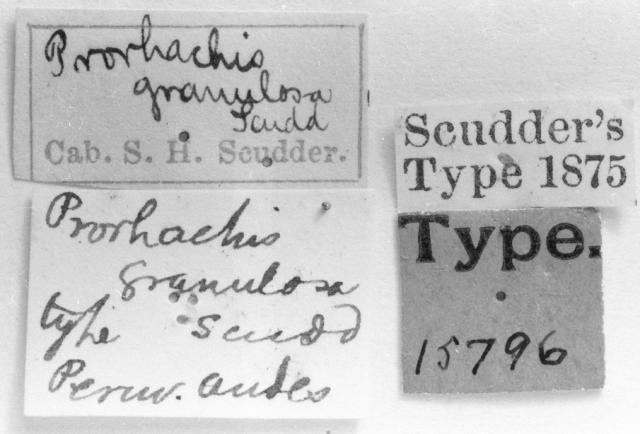 Prorhachis
granulosa
Scudd
Cab. S. H. Scudder.
Prorhachis
granulosa
type Scudd
Peruv. Andes
Scudder's
Type 1875
Type.
15796